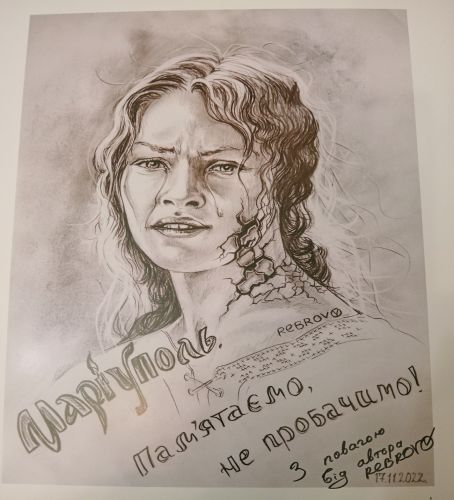 REBROVO
Маріуполь.
Пам'ятаємо,
не пробачимо!
З повагою
від автора
REBROVO
17.11.2022